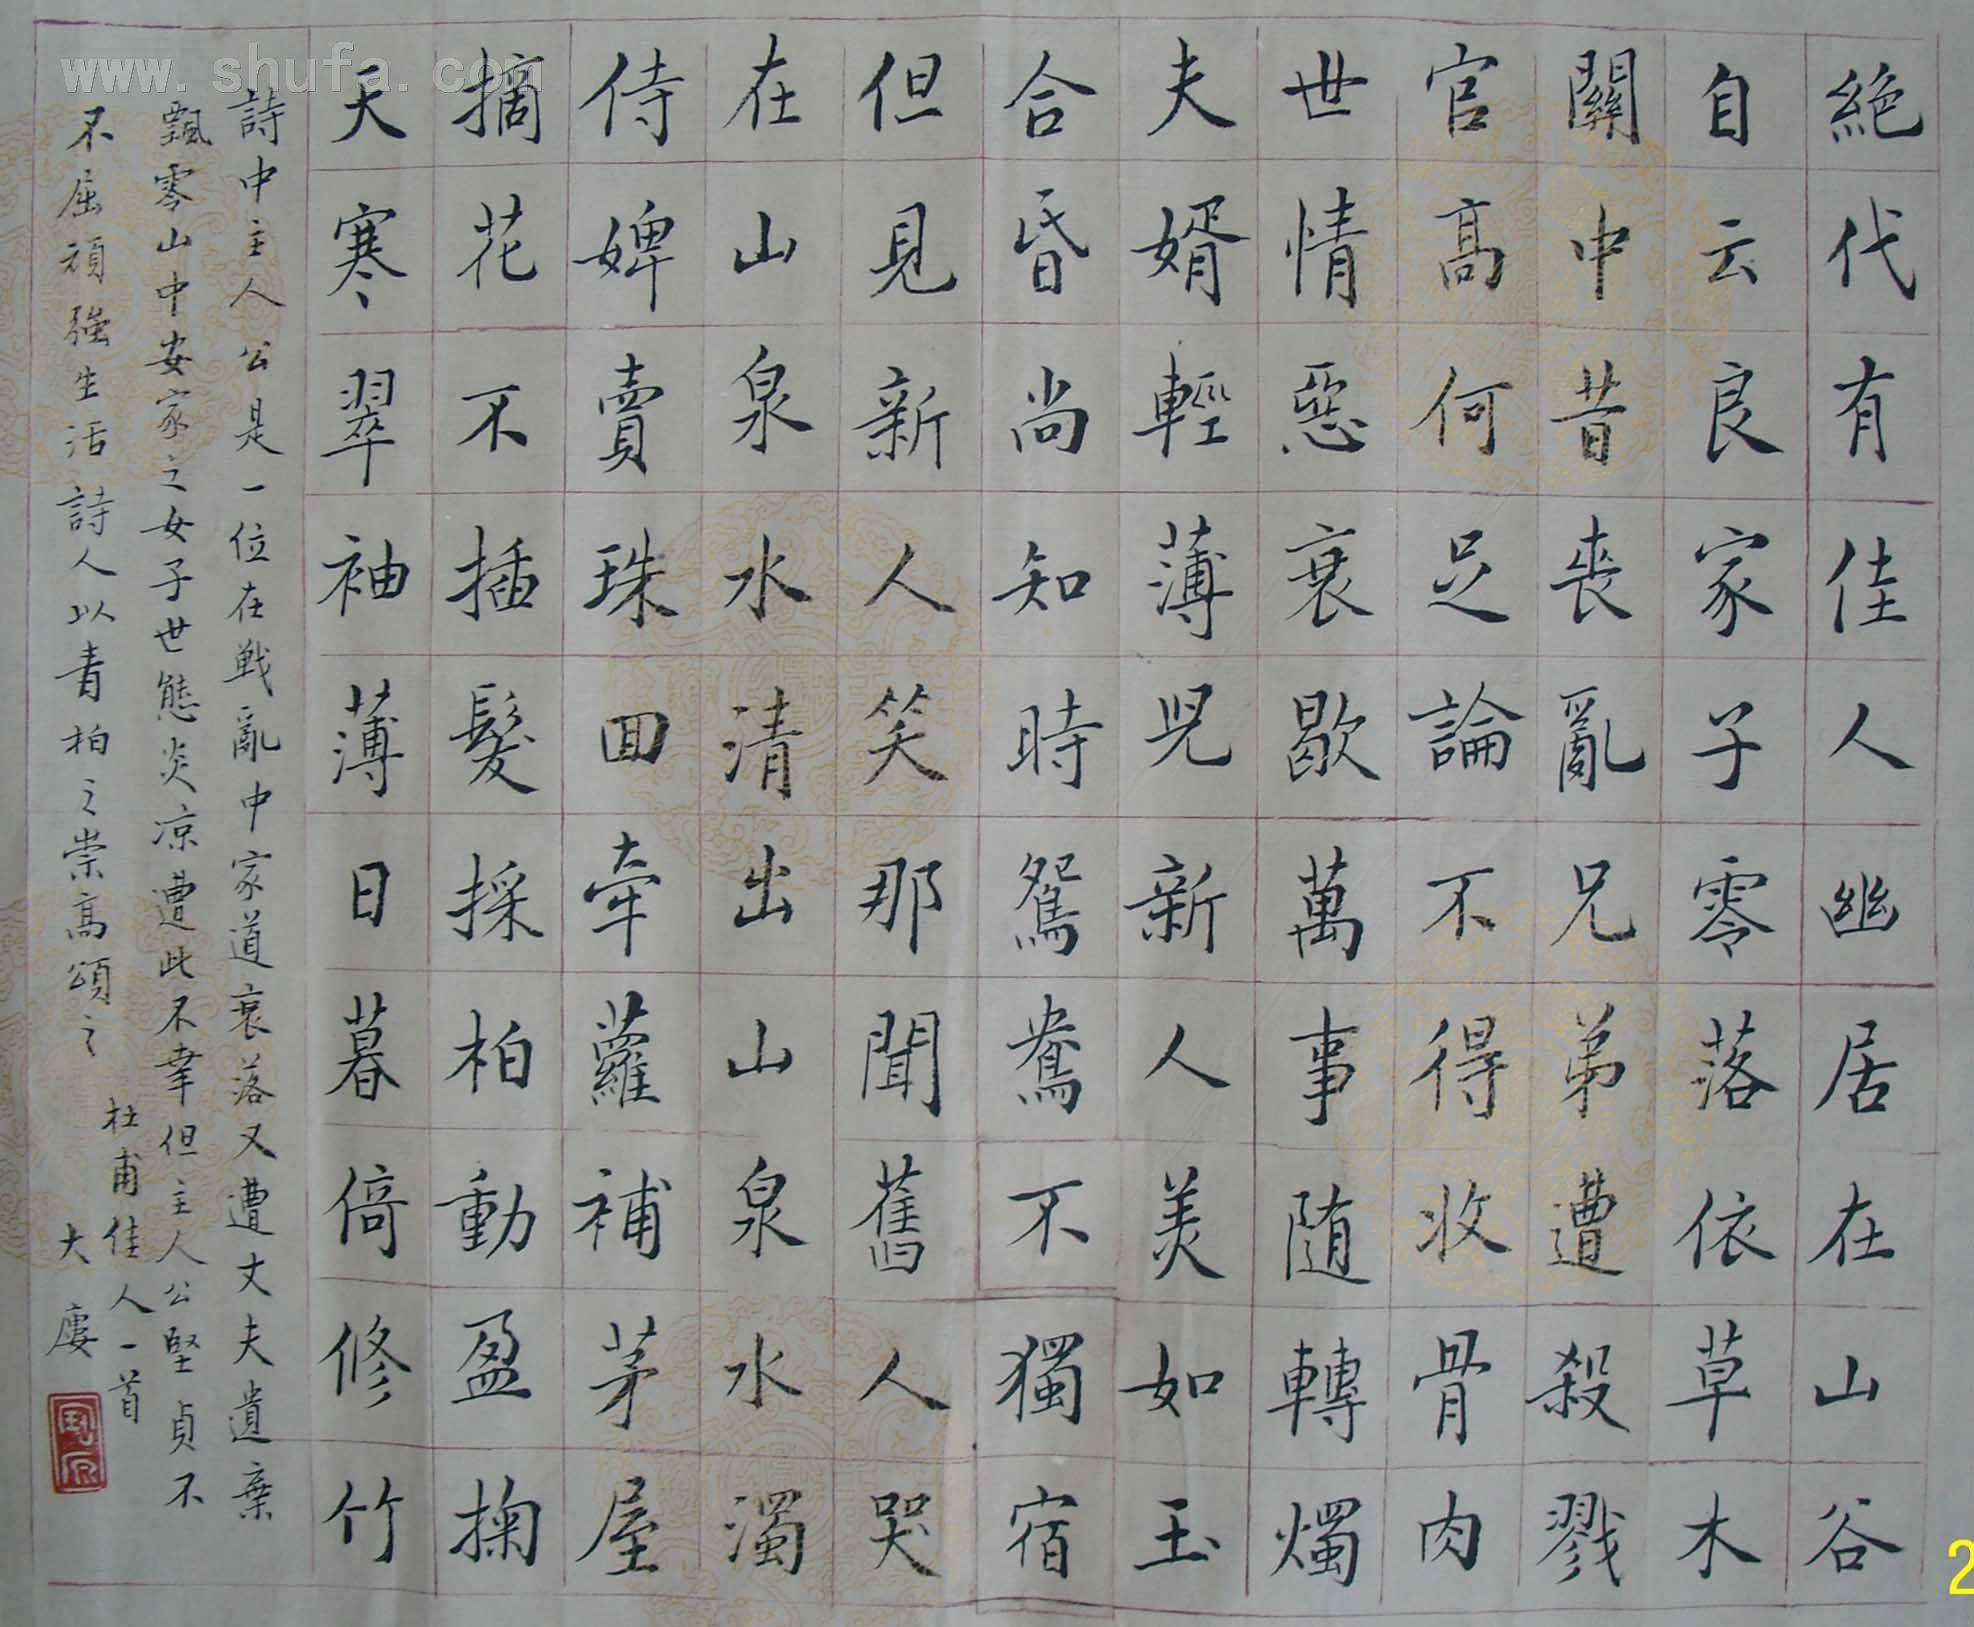 絶代有佳人幽居在山谷
自云良家子零落依草木
關中昔喪亂兄弟遭殺戮
官高何足論不得收骨肉
世情惡衰歇萬事随轉燭
夫婿輕薄兒新人美如玉
合昏尚知時鴛鴦不獨宿
但見新人笑那聞舊人哭
在山泉水清出山泉水濁
侍婢賣珠回牽蘿補茅屋
摘花不插髮採柏動盈掬
天寒翠袖薄日暮倚修竹
詩中主人公是一位在戦亂中家道衰落又遭丈夫遺棄
飄零山中安家之女子世態炎凉遭此不幸但主人公堅貞不
不屈頑強生活詩人以青柏之崇高頌之
杜甫佳人一首
大廔
www.shufa.com
2